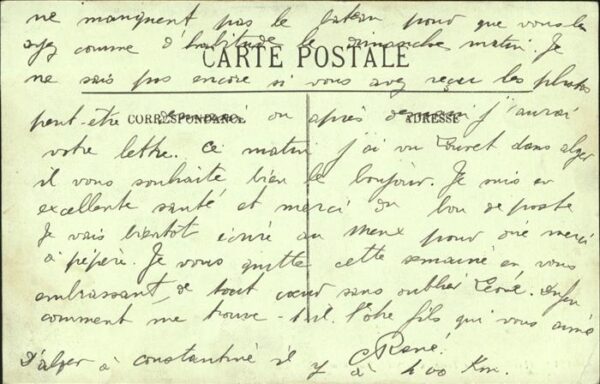 ne manquent pas le bateau pour que vous les
ayez comme d'habitude le dimanche matin. Je
CARTE POSTALE
ne sais pas encore si vous avez reçu les photos
peut-être demain ou après demain j'aurai
CORRESPONDANCE ADRESSE
votre lettre. Ce matin j'ai vu dans alger
il vous souhaite bien le bonjour. Je suis en
excellente santé et merci du bon de poste
Je vais bientôt écrire au pour dire merci
à pépère. Je vous quitte cette semaine en vous
embrassant de tout cœur sans oublier
comment me trouve-t-il. Votre fils qui vous aime
René.
D'alger à constantine il y a Km.